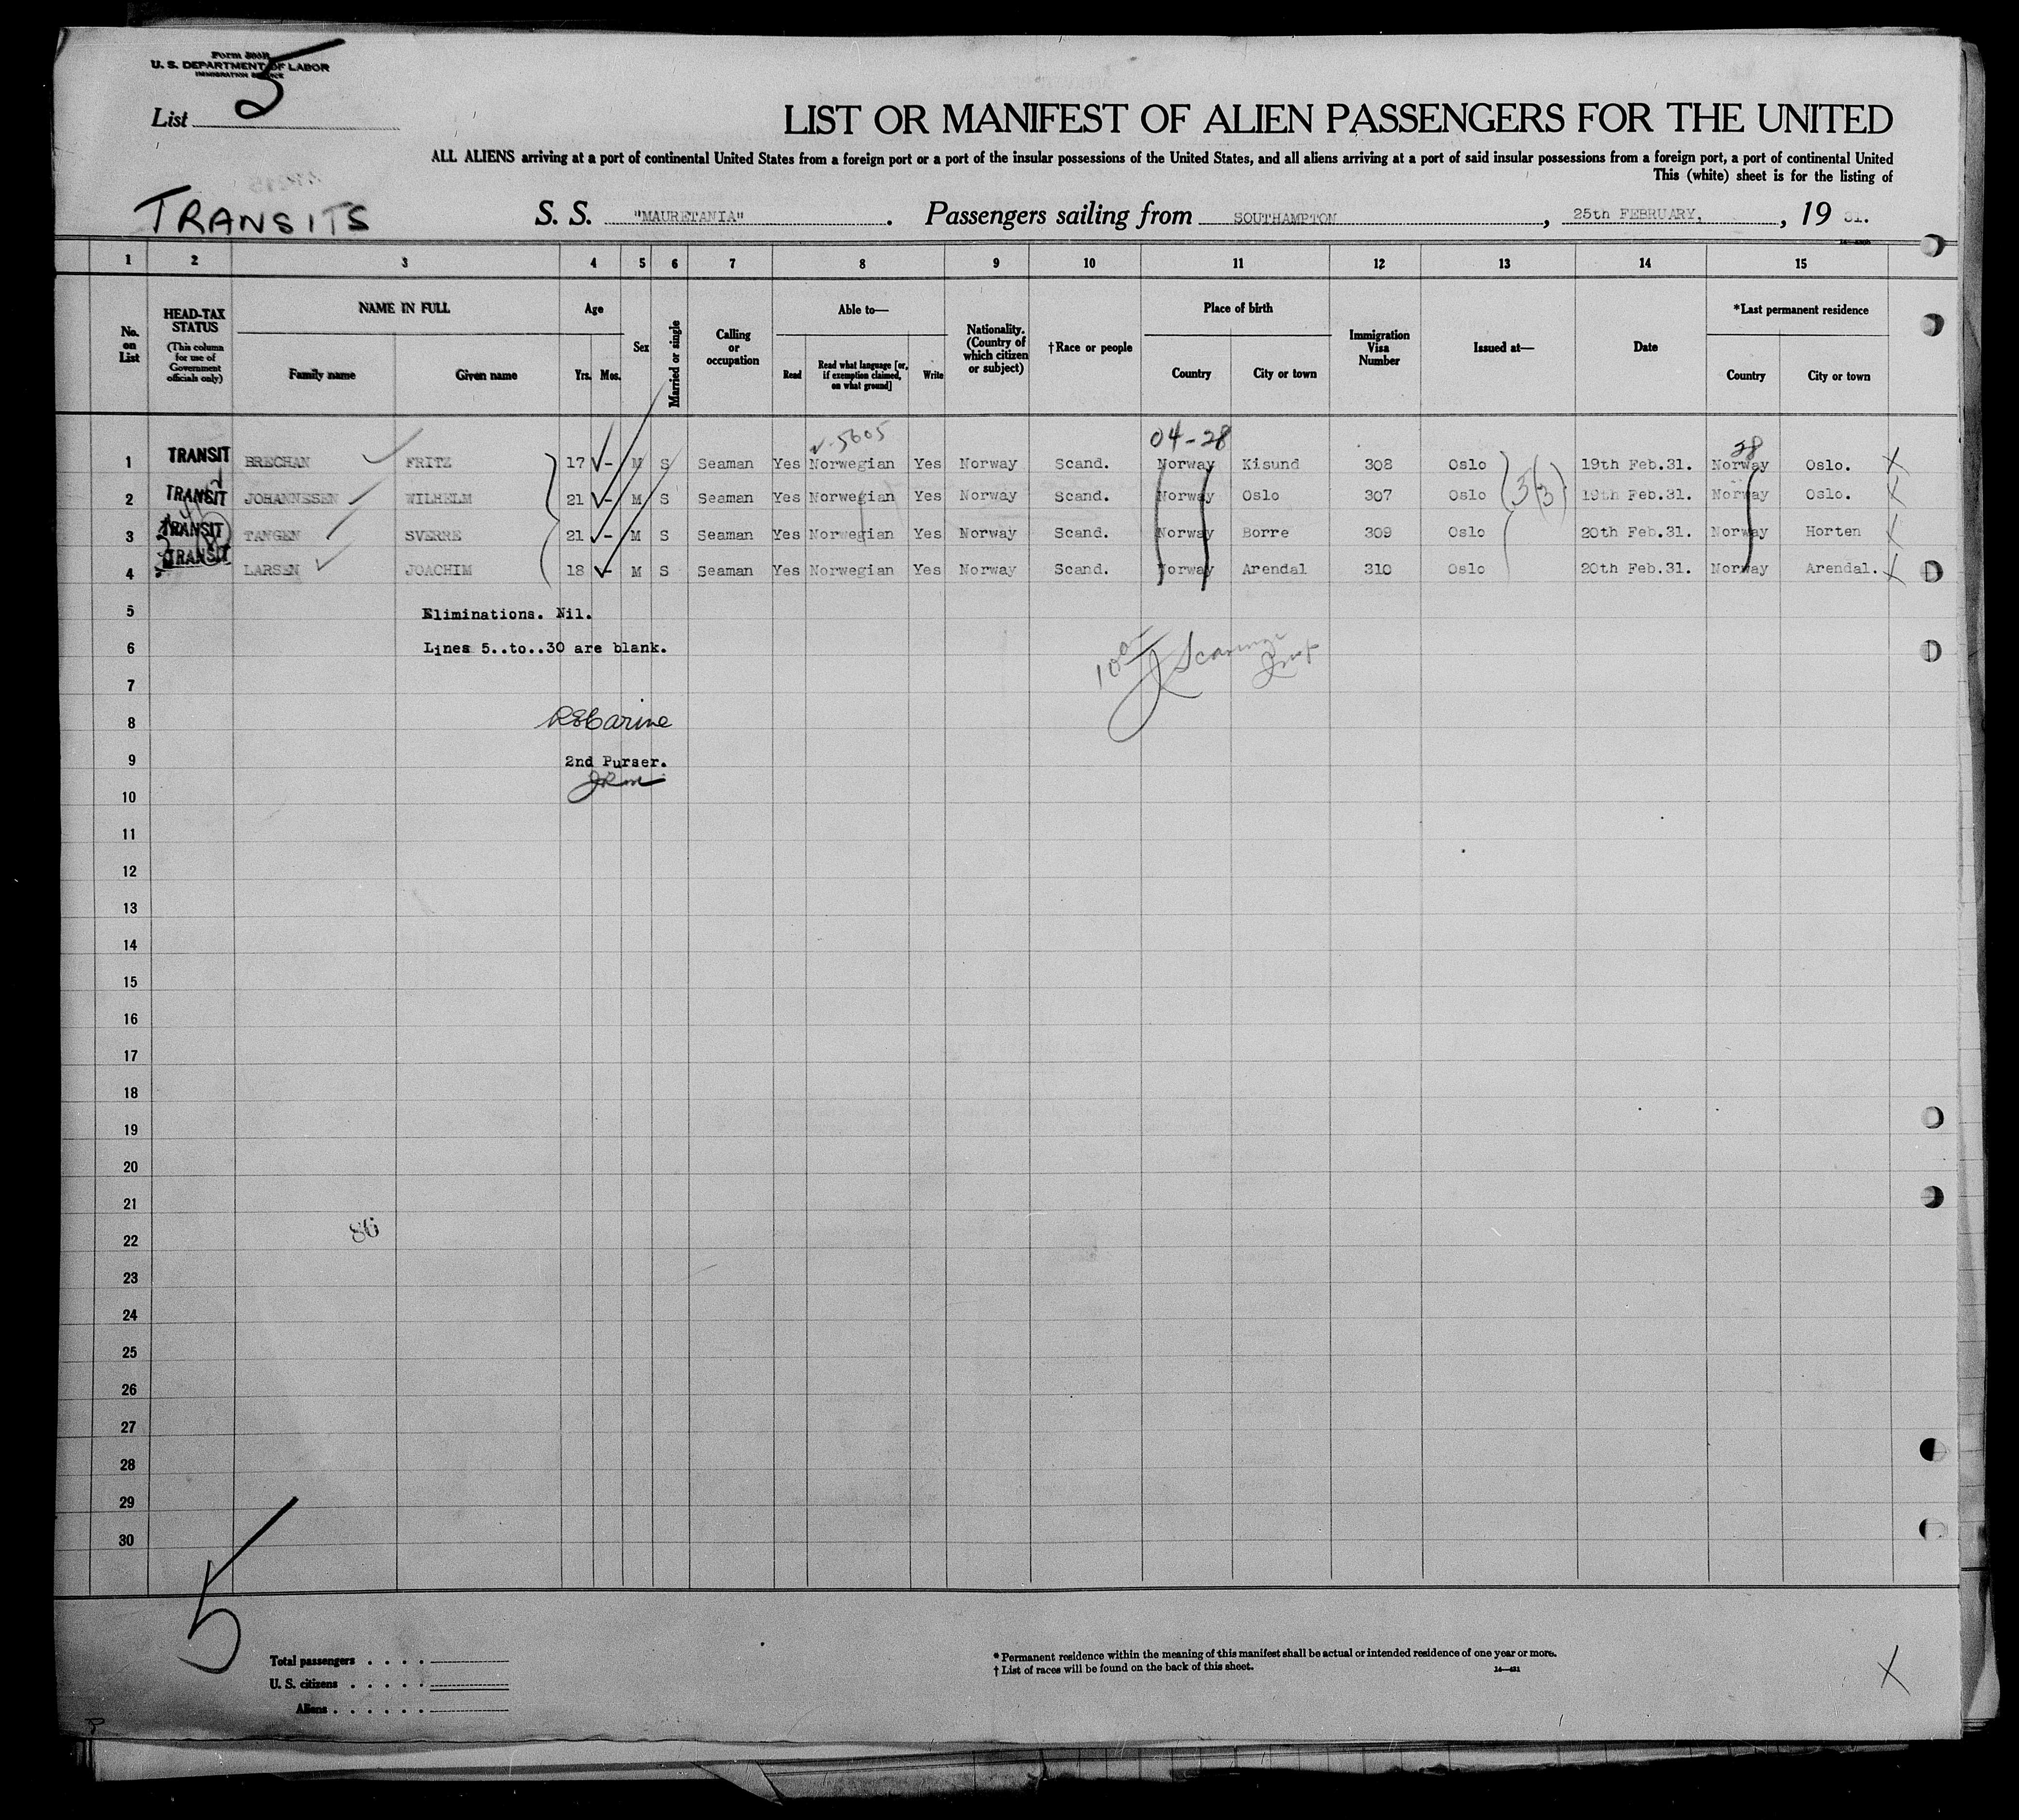 U. S. DEPARTMENT OF LABOR
IMMIGRATION SERVICE
List 5
LIST OR MANIFEST OF ALIEN PASSENGERS FOR THE UNITED
ALL ALIENS arriving at a port of continental United States from a foreign port or a port of the insular possessions of the United States, and all aliens arriving at a port of said insular possessions from a foreign port, a port of continental United
This (white) sheet is for the listing of
TRANSITS
S. S. "MAURETANIA". Passengers sailing from SOUTHAMPTON, 25th FEBRUARY, 19 31.
1 2 3 4 5 6 7 8 9 10 11 12 13 14 15
No. on List
HEAD-TAX STATUS (This column for use of Government officials only)
NAME IN FULL
Family name Given name
Age
Yrs. Mos.
Sex
Married or single
Calling or occupation
Able to—
Read Read what language [or, if exemption claimed, on what ground] Write
Nationality. (Country of which citizen or subject)
†Race or people
Place of birth
Country City or town
Immigration Visa Number
Issued at—
Date
*Last permanent residence
Country City or town
5605 04-28 28
1 TRANSIT BRECHAN FRITZ 17 - M S Seaman Yes Norwegian Yes Norway Scand. Norway Kisund 308 Oslo 19th Feb.31. Norway Oslo.
2 TRANSIT JOHANNESEN WILHELM 21 - M S Seaman Yes Norwegian Yes Norway Scand. Norway Oslo 307 Oslo 19th Feb.31. Norway Oslo.
3 TRANSIT TANGEN SVERRE 21 - M S Seaman Yes Norwegian Yes Norway Scand. Norway Borre 309 Oslo 20th Feb.31. Norway Horten
4 TRANSIT LARSEN JOACHIM 18 - M S Seaman Yes Norwegian Yes Norway Scand. Norway Arendal 310 Oslo 20th Feb.31. Norway Arendal.
5 Eliminations. Nil.
6 Lines 5..to..30 are blank.
7
8
9 2nd Purser.
10
11
12
13
14
15
16
17
18
19
20
21
86
22
23
24
25
26
27
28
29
30
5
Total passengers . . . .
U. S. citizens . . . . .
Aliens . . . . . .
* Permanent residence within the meaning of this manifest shall be actual or intended residence of one year or more.
† List of races will be found on the back of this sheet.
X